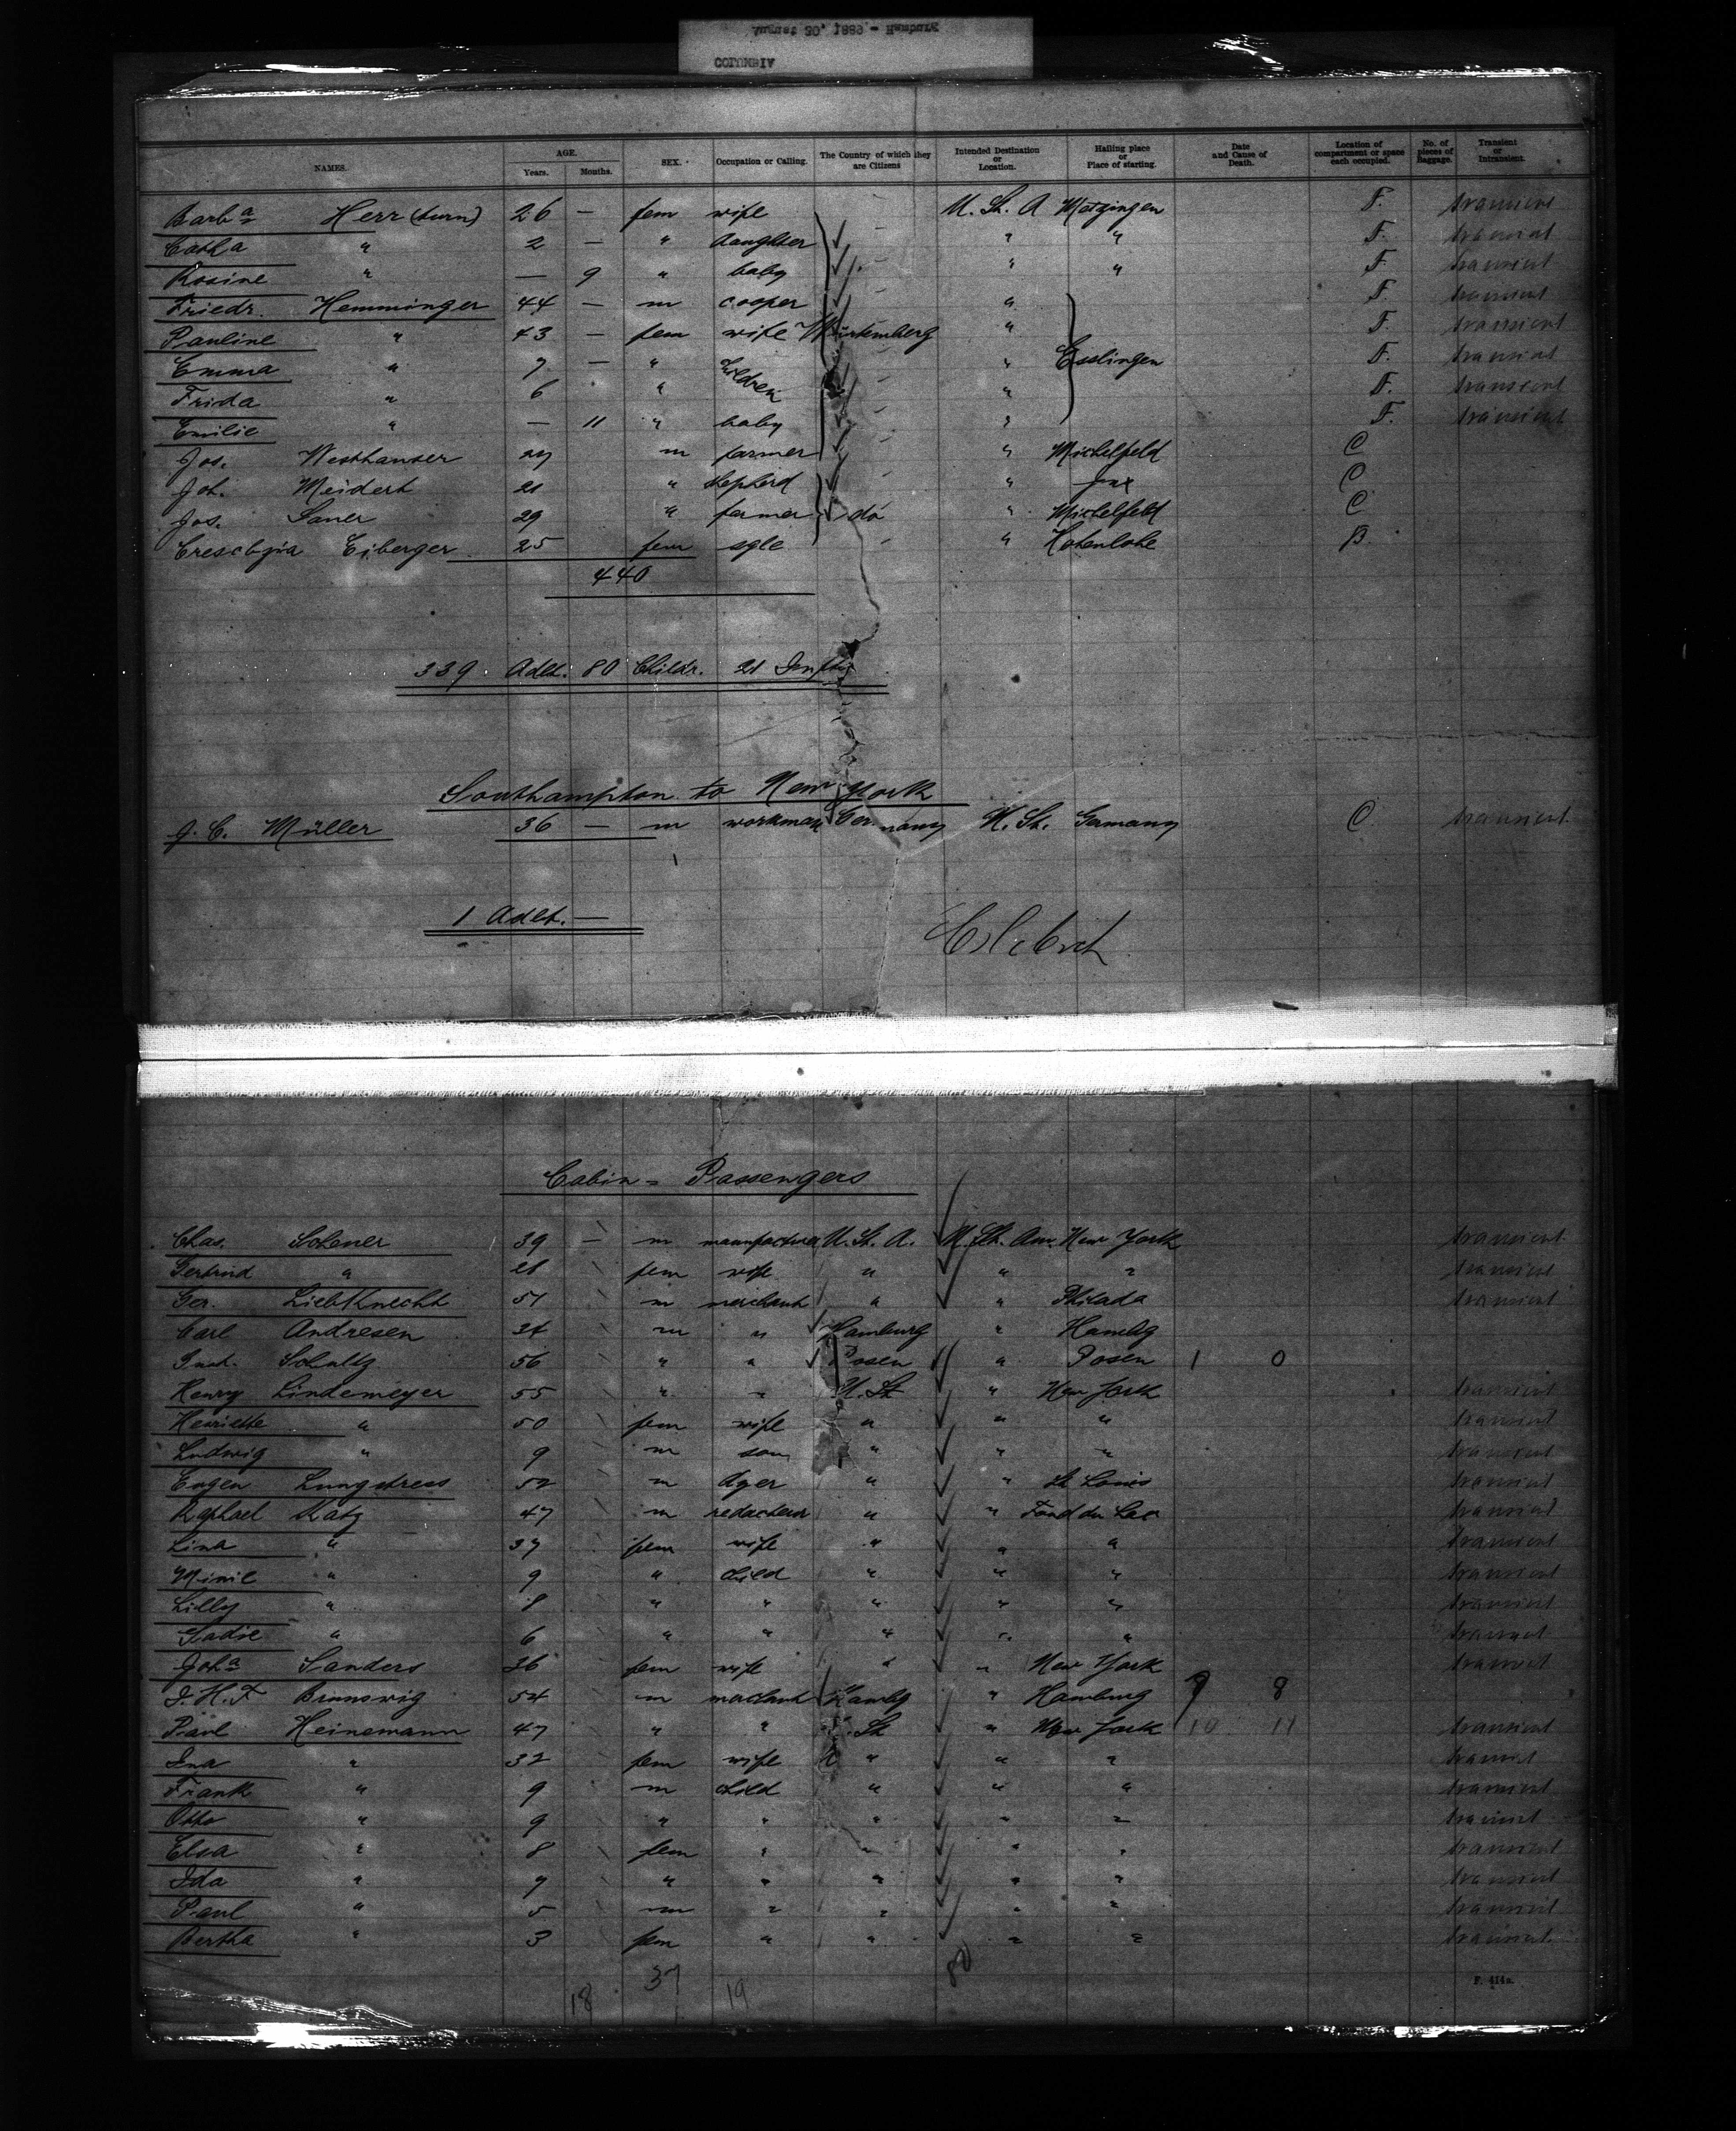 COLUMBIA
August 20, 1889 - Hamburg
NAMES. AGE. Years. Months. SEX. Occupation or Calling. The Country of which they are Citizens Intended Destination or Location. Hailing place or Place of starting. Date and Cause of Death. Location of compartment or space each occupied. No. of pieces of Baggage. Transient or Intransient.
Barba Herr (turn) 26 — fem wife U. St. A Metzingen F. transient
Catha " 2 — " daughter " " F. transient
Rosine " — 9 " baby " " F. transient
Friedr. Hemminger 44 — m cooper " F. transient
Pauline " 43 — fem wife Würtemberg " F. transient
Emma " 7 — " children " Esslingen F. transient
Frida " 6 " " F. transient
Emilie " — 11 " baby " F. transient
Jos. Westhauser 27 m farmer " Michelfeld C
Joh. Meidert 21 " shepherd " C
Jos. Saner 29 " farmer do " Michelfeld C
Eiberger 25 fem sgle " Hohenlohe B.
440
339 Adlt. 80 Childr. 21 Infts
Southampton to New York
J. C. Müller 36 — m workman Germany U. St. Germany C transient
1 Adlt. —
Cabin = Passengers
Chas. Schener 39 — m manufacturer U. St. A. U. St. Am. New York transient
Gertrud " 21 fem wife " " " transient
Ger. Liebknecht 51 m merchant " " Philada transient
Carl Andresen 34 m " Hamburg " Hambg
Schultz 56 " " Posen " Posen 1 0
Henry Lindemeyer 55 " " U. St " New York transient
Henriette " 50 fem wife " " " transient
Ludwig " 9 m son " " " transient
Eugen Lungstrass 52 m dyer " " St. Louis transient
Raphael Katz 47 m redacteur " " Fond du Lac transient
Lina " 37 fem wife " " " transient
Minie " 9 " child " " " transient
Lilly " 8 " " " " " transient
Sadie " 6 " " " " " transient
Joha Sanders 36 fem wife " " New York transient
J. H. F Brunswig 54 m merchant Hambg " Hamburg 9 8
Paul Heinemann 47 " " U. St " New York 10 11 transient
Ina " 32 fem wife " " " transient
Frank " 9 m child " " " transient
Otto " 9 " " " " " transient
Elsa " 8 fem " " " " transient
Ida " 7 " " " " " transient
Paul " 5 m " " " " transient
Bertha " 3 fem " " " " transient
37 80
18 19
F. 414a.